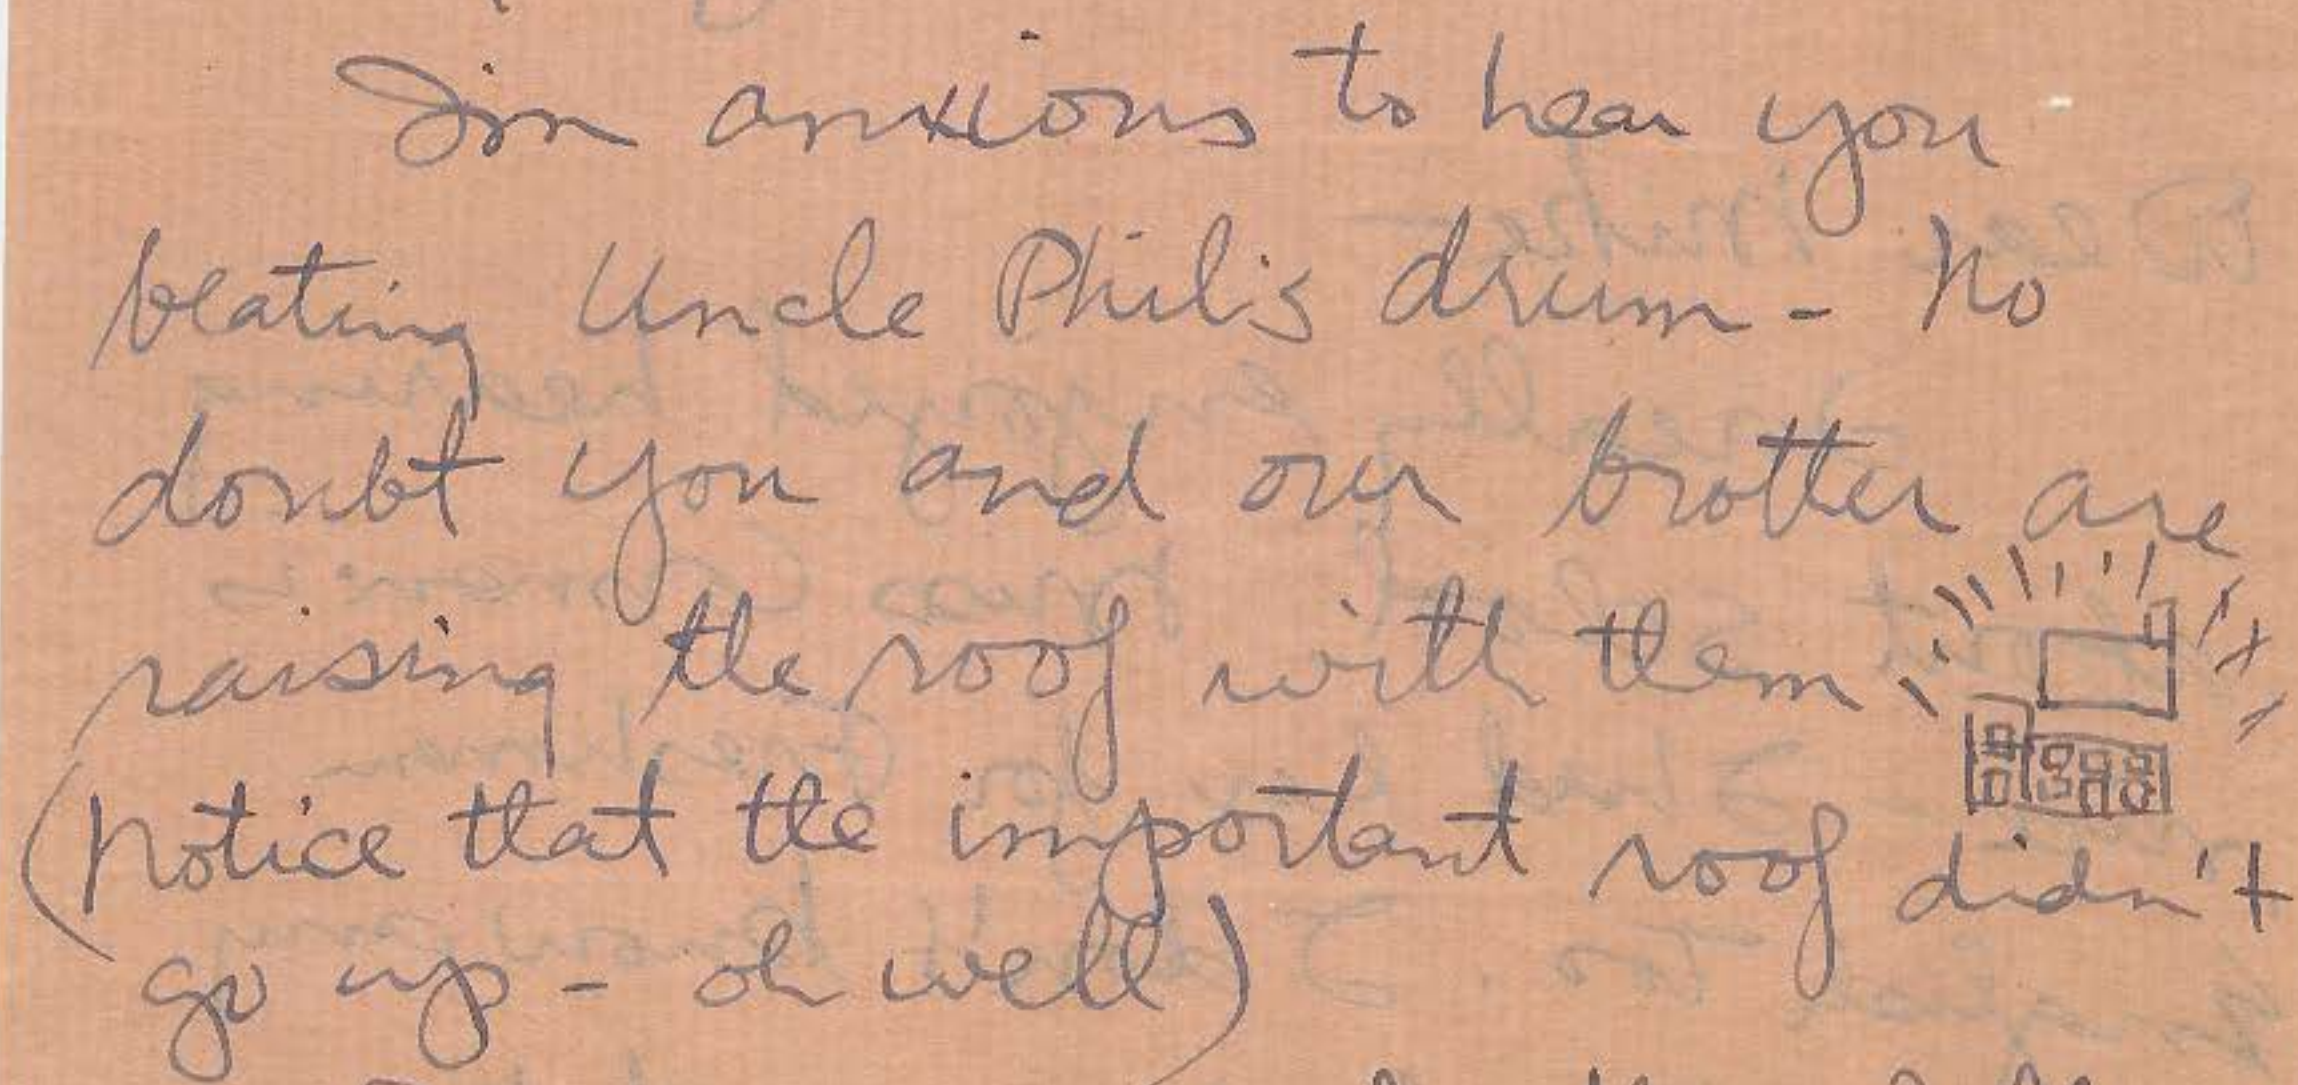 Im anxious to hear you
beating Uncle Phil's drum - No
doubt you and our brother are
raising the roof with them
(Notice that the important roof didn't
go up - oh well)